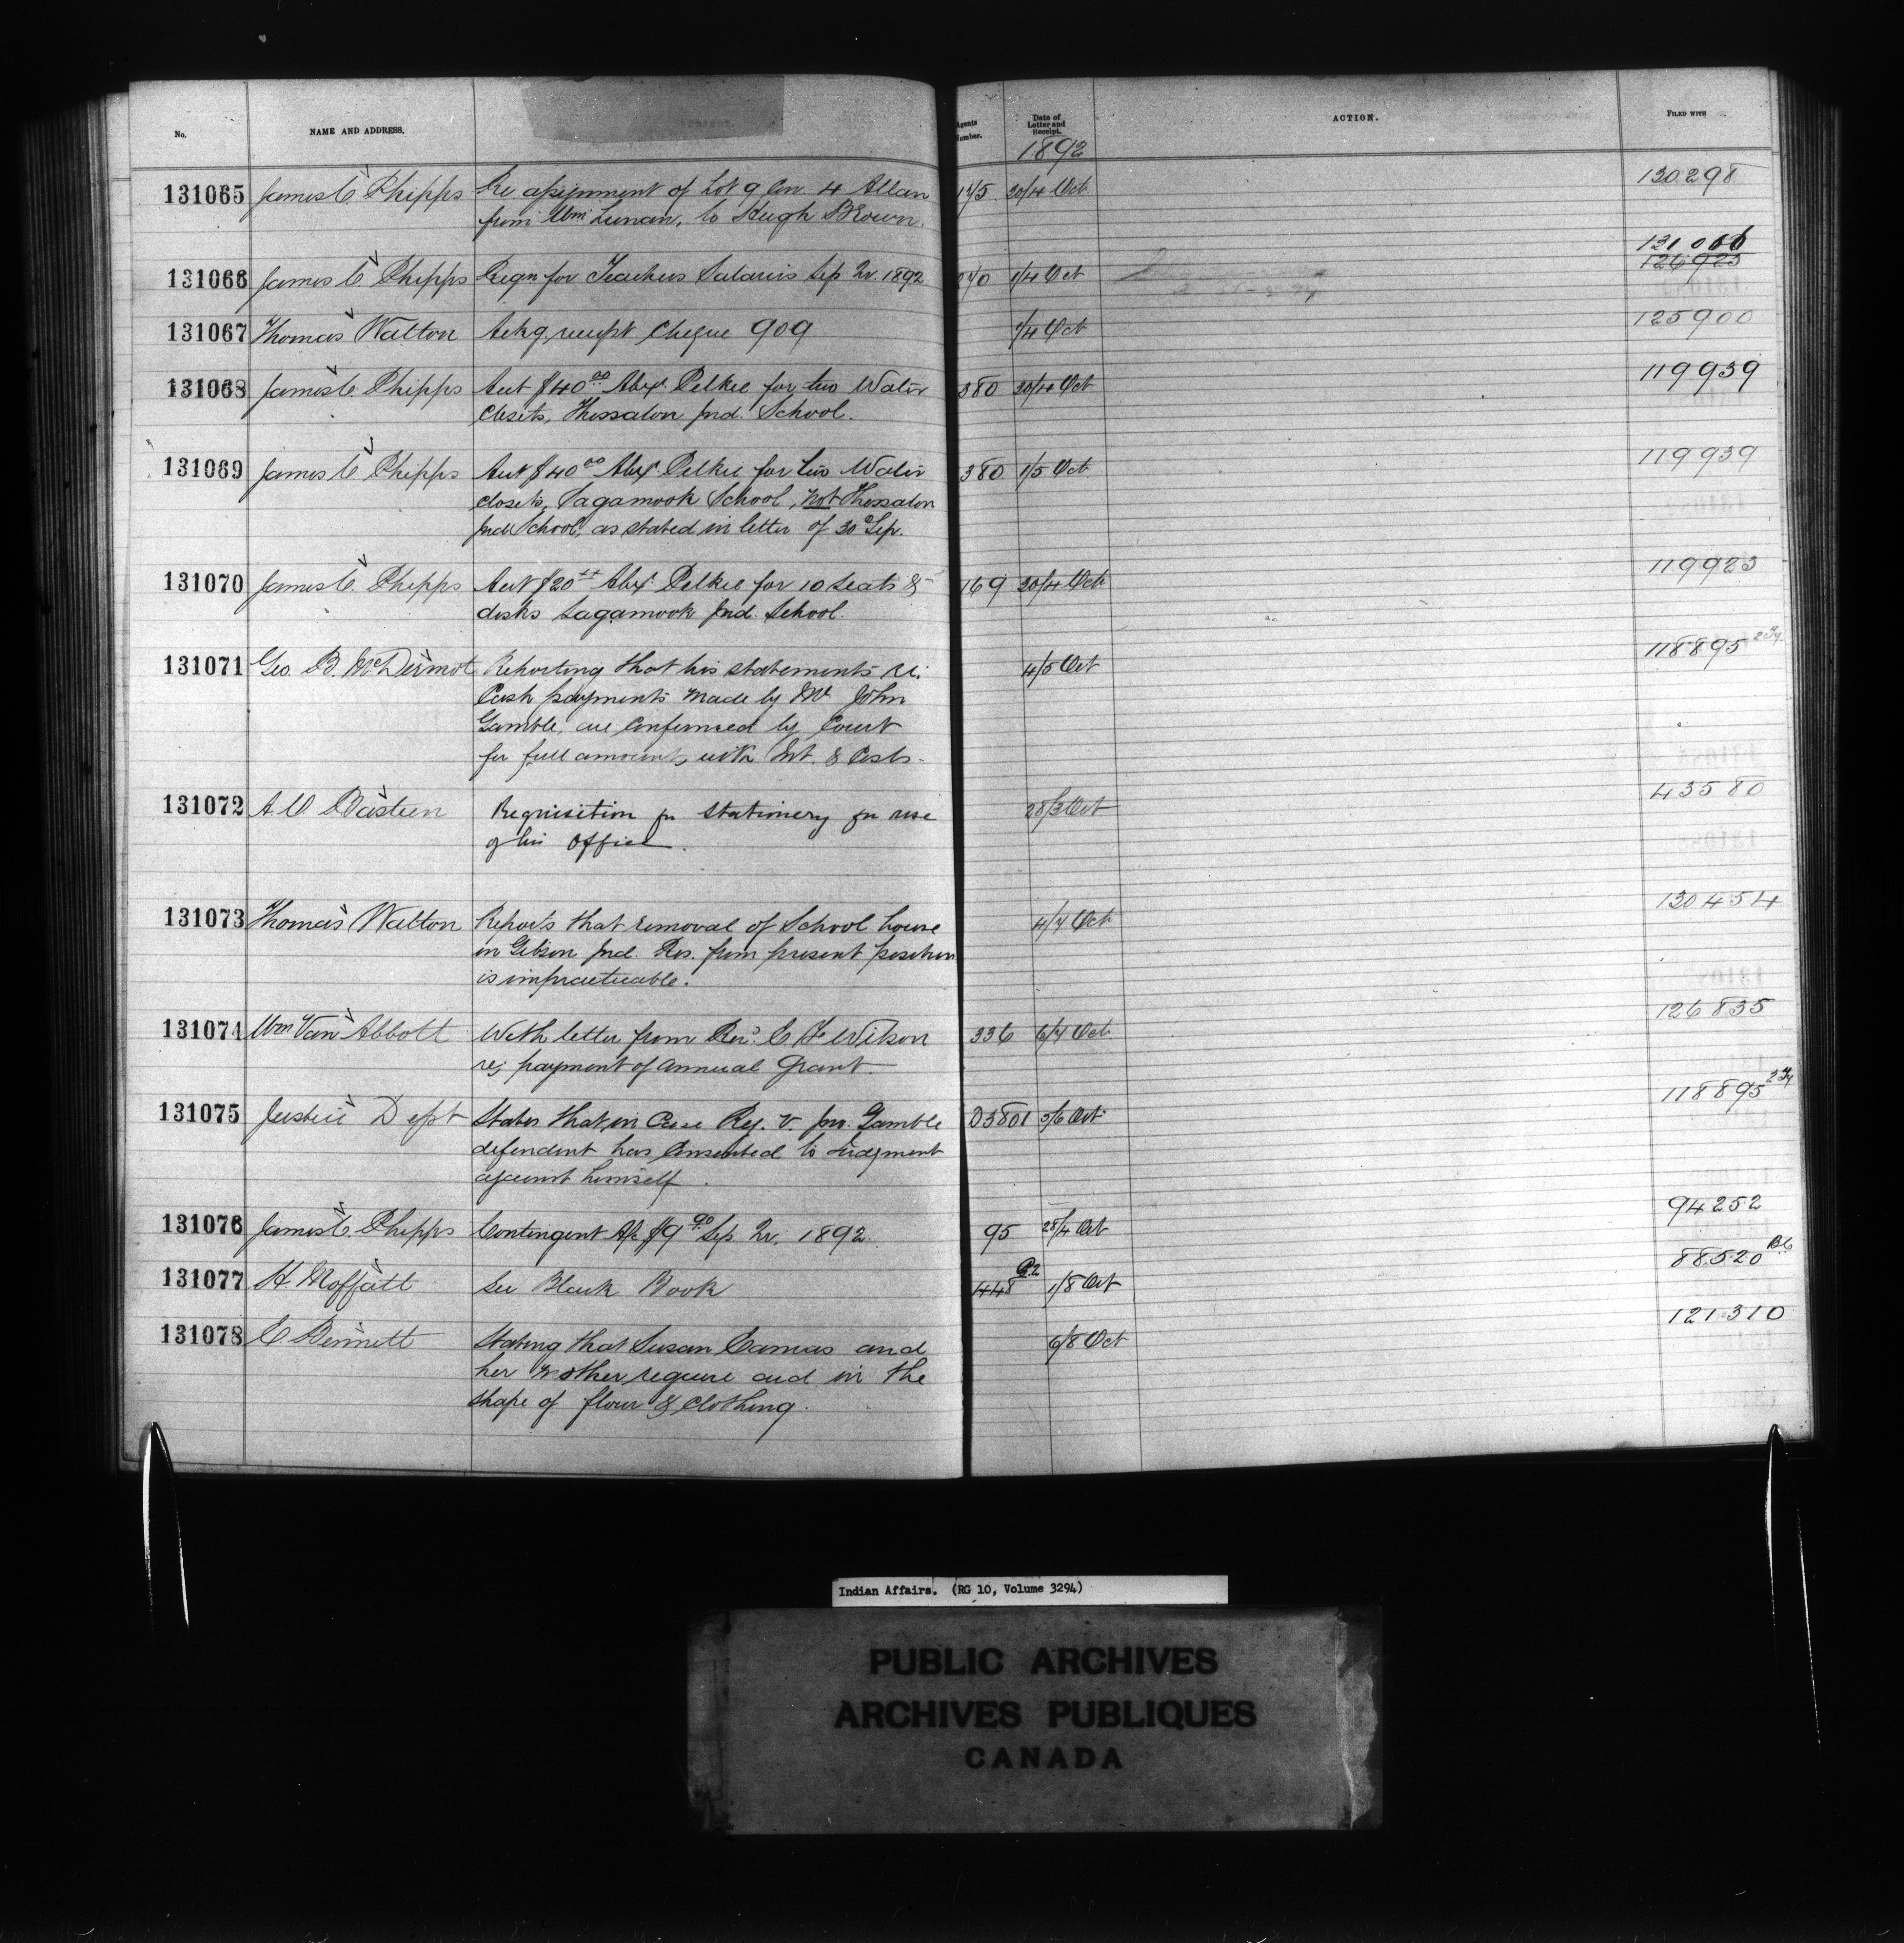 No.
NAME AND ADDRESS.
Agents Number.
Date of Letter and Receipt.
ACTION.
FILED WITH
1892
131065 James C. Phipps Re assignment of Lot 9 Con. 4 Allan 30/4 Oct 130298
from Wm Lunan, to Hugh Brown.
131066
126925
131066 James C. Phipps Reqn for Teachers Salaries Sep Qr. 1892 1/4 Oct
131067 Thomas Walton Ackg. receipt Cheque 909 1/4 Oct 125900
131068 James C. Phipps Acct $40.00 Alex. Pelkie for two Water 380 30/4 Oct 119939
closets, Thessalon Ind. School.
131069 James C. Phipps Acct $40.00 Alex. Pelkie for two Water 380 1/5 Oct 119939
closets, Sagamook School, not Thessalon
Ind. School, as stated in letter of 30 Sep.
131070 James C. Phipps Acct $20 Alex. Pelkie for 10 seats & 169 30/4 Oct 119923
desks Sagamook Ind. School.
131071 Geo. B. McDermot Reporting that his statements re. 4/5 Oct 118895
Cash payments made by Mr John
Gamble, are confirmed by Court
for full amount, with Int. & Costs.
131072 A. O. Bastien Requisition for stationery for use 28/3 Oct 43580
of his office.
131073 Thomas Walton Reports that removal of School house 4/7 Oct 130454
in Gibson Ind. Res. from present position
is impracticable.
131074 Wm Van Abbott With letter from Revd. C. F. Wilson 336 6/7 Oct. 126835
re; payment of annual grant.
131075 Justice Dept States that in Case Reg. v. Jno. Gamble D3801 5/6 Oct 118895
defendent has consented to judgment
against himself.
131076 James C. Phipps Contingent A/c $9.90 Sep. Qr. 1892. 95 28/4 Oct 94252
131077 H. Moffatt See Black Book 448 1/8 Oct 88520
131078 C Bennett Stating that Susan Camas and 6/8 Oct 121310
her mother require aid in the
shape of flour & clothing.
Indian Affairs. (RG 10, Volume 3294)
PUBLIC ARCHIVES
ARCHIVES PUBLIQUES
CANADA